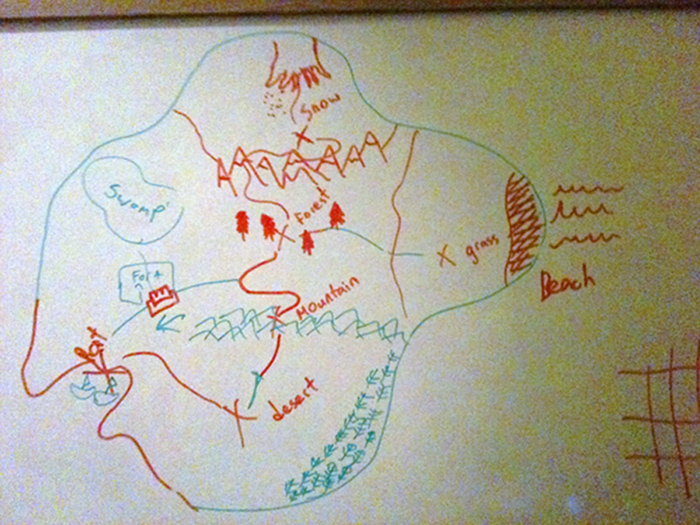 Snow
Swomp
Forest
grass
Beach
Fort
Mountain
Port
desert